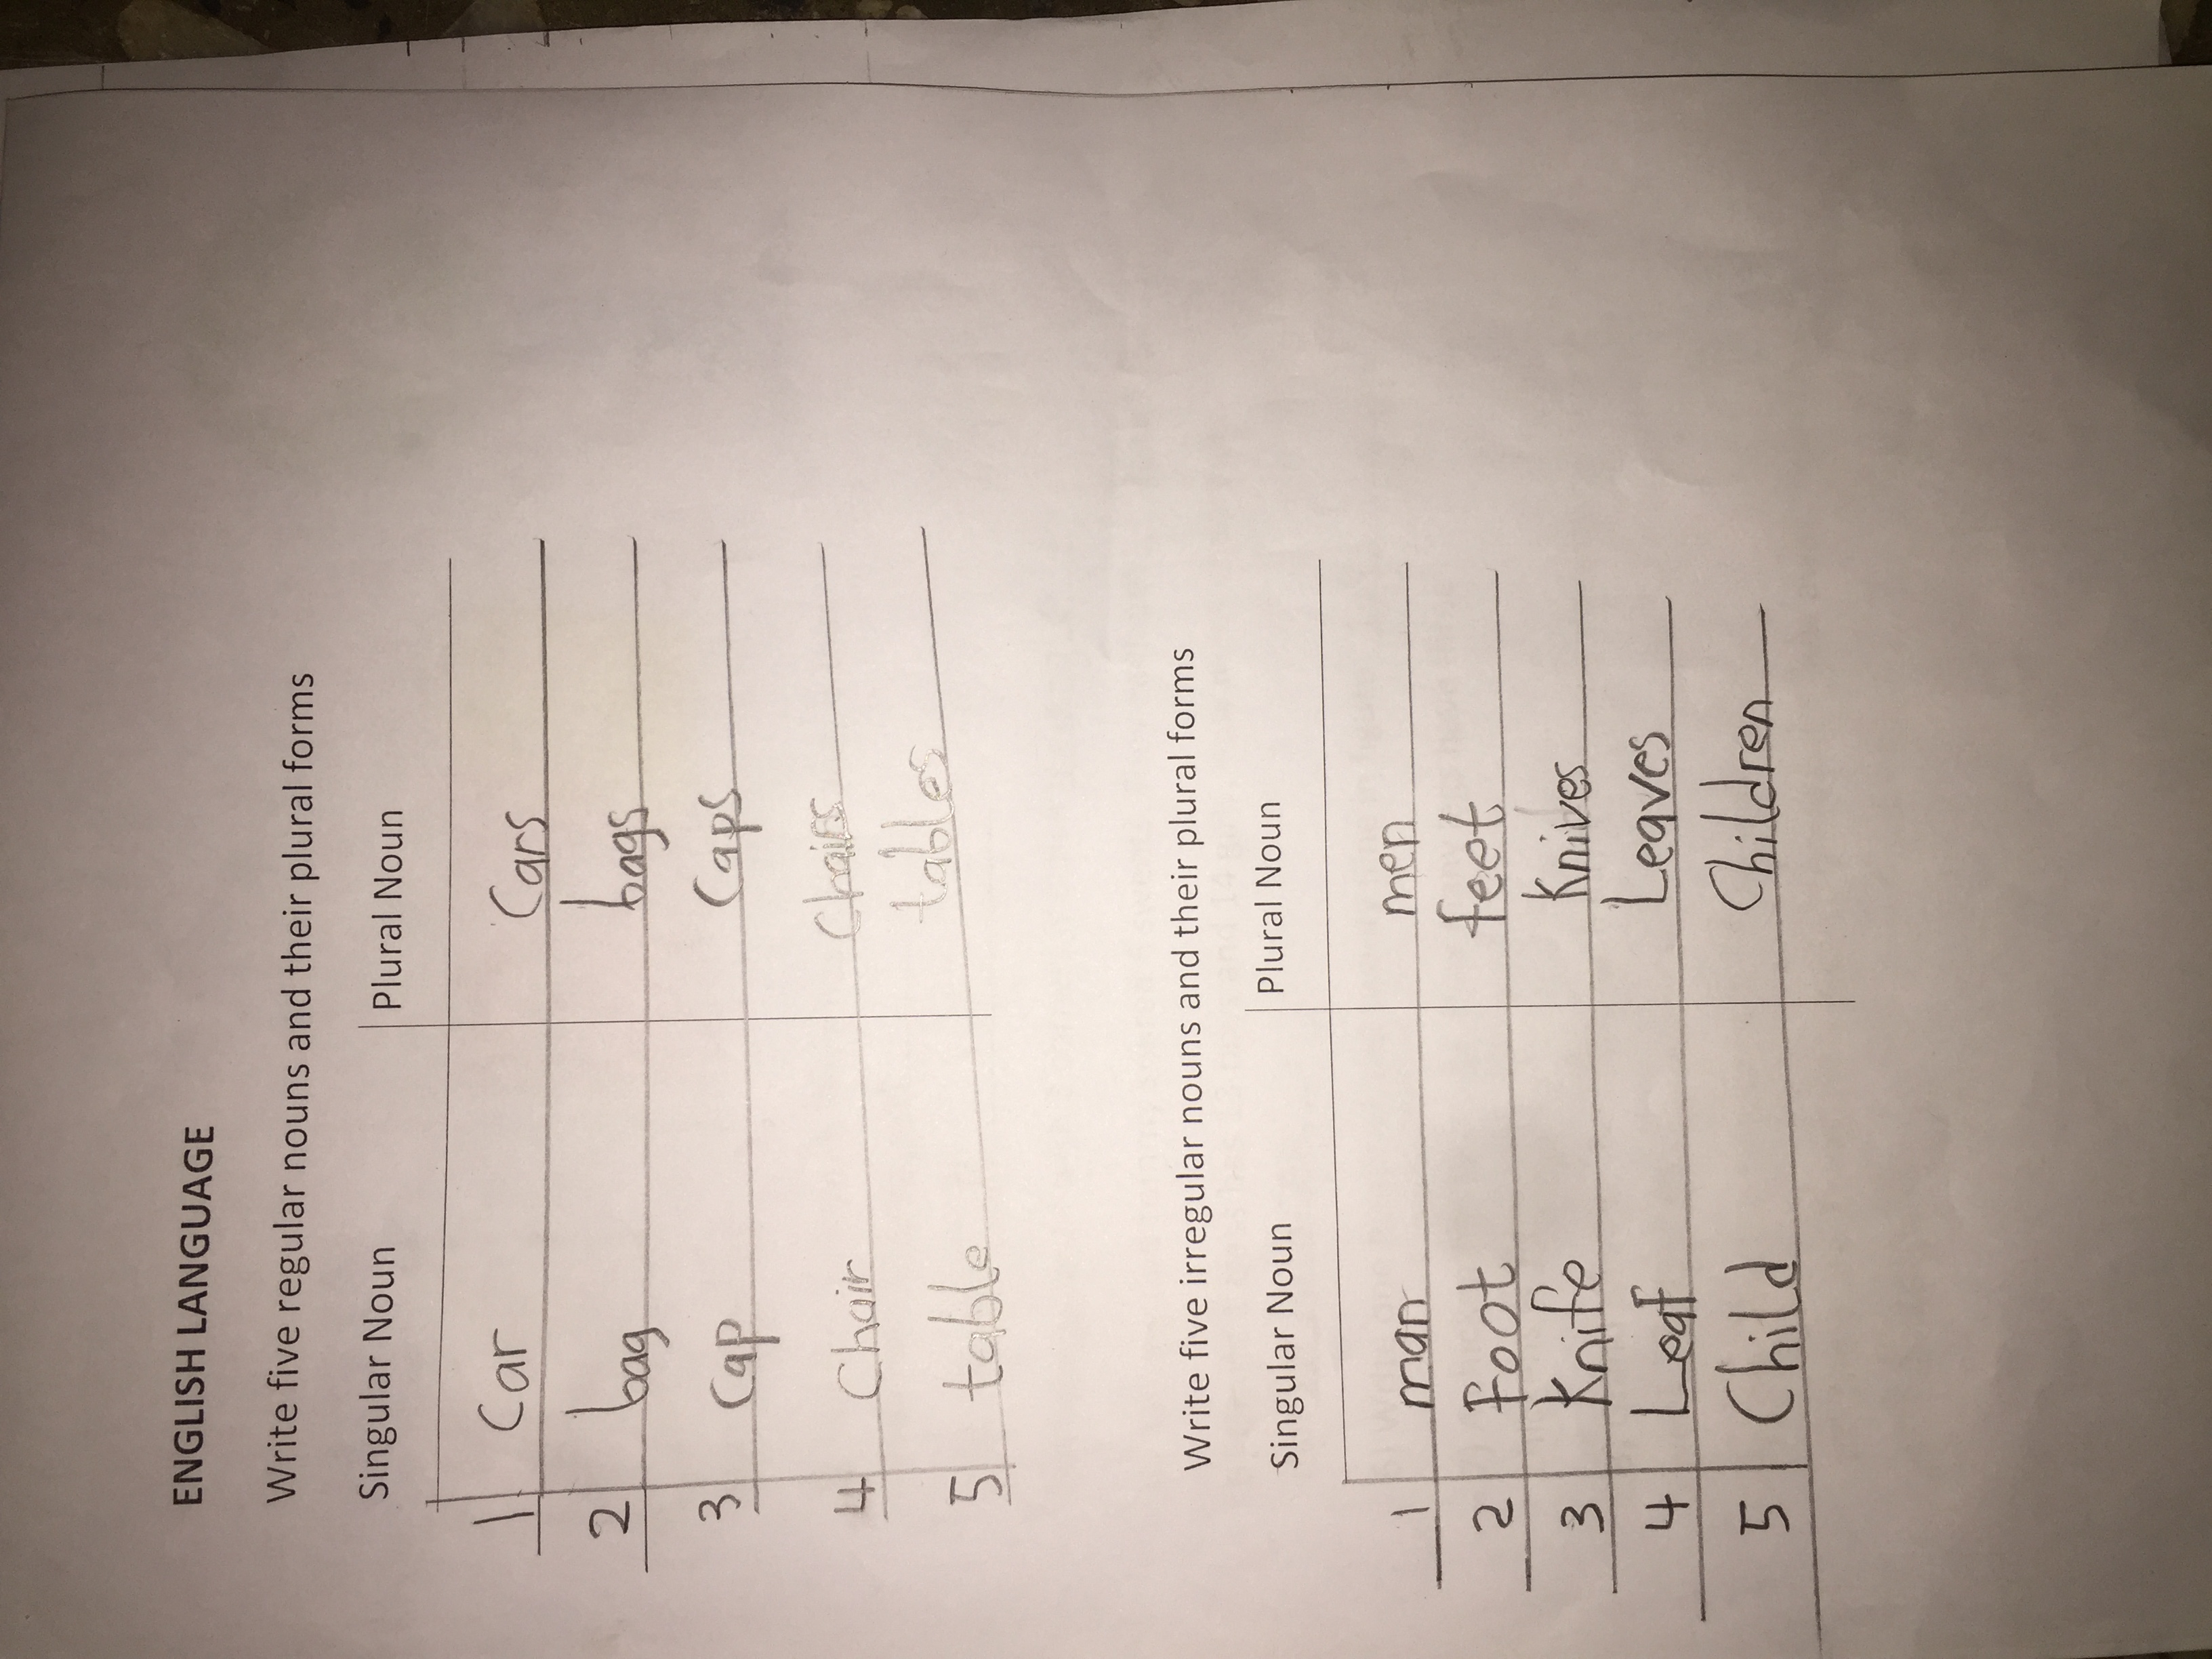 ENGLISH LANGUAGE
Write five regular nouns and their plural forms
Singular Noun Plural Noun
1 Car Cars
2 bag bags
3 Cap Caps
4 Chair Chairs
5 table tables
Write five irregular nouns and their plural forms
Singular Noun Plural Noun
1 man men
2 Foot feet
3 Knife Knives
4 Leaf Leaves
5 Child Children